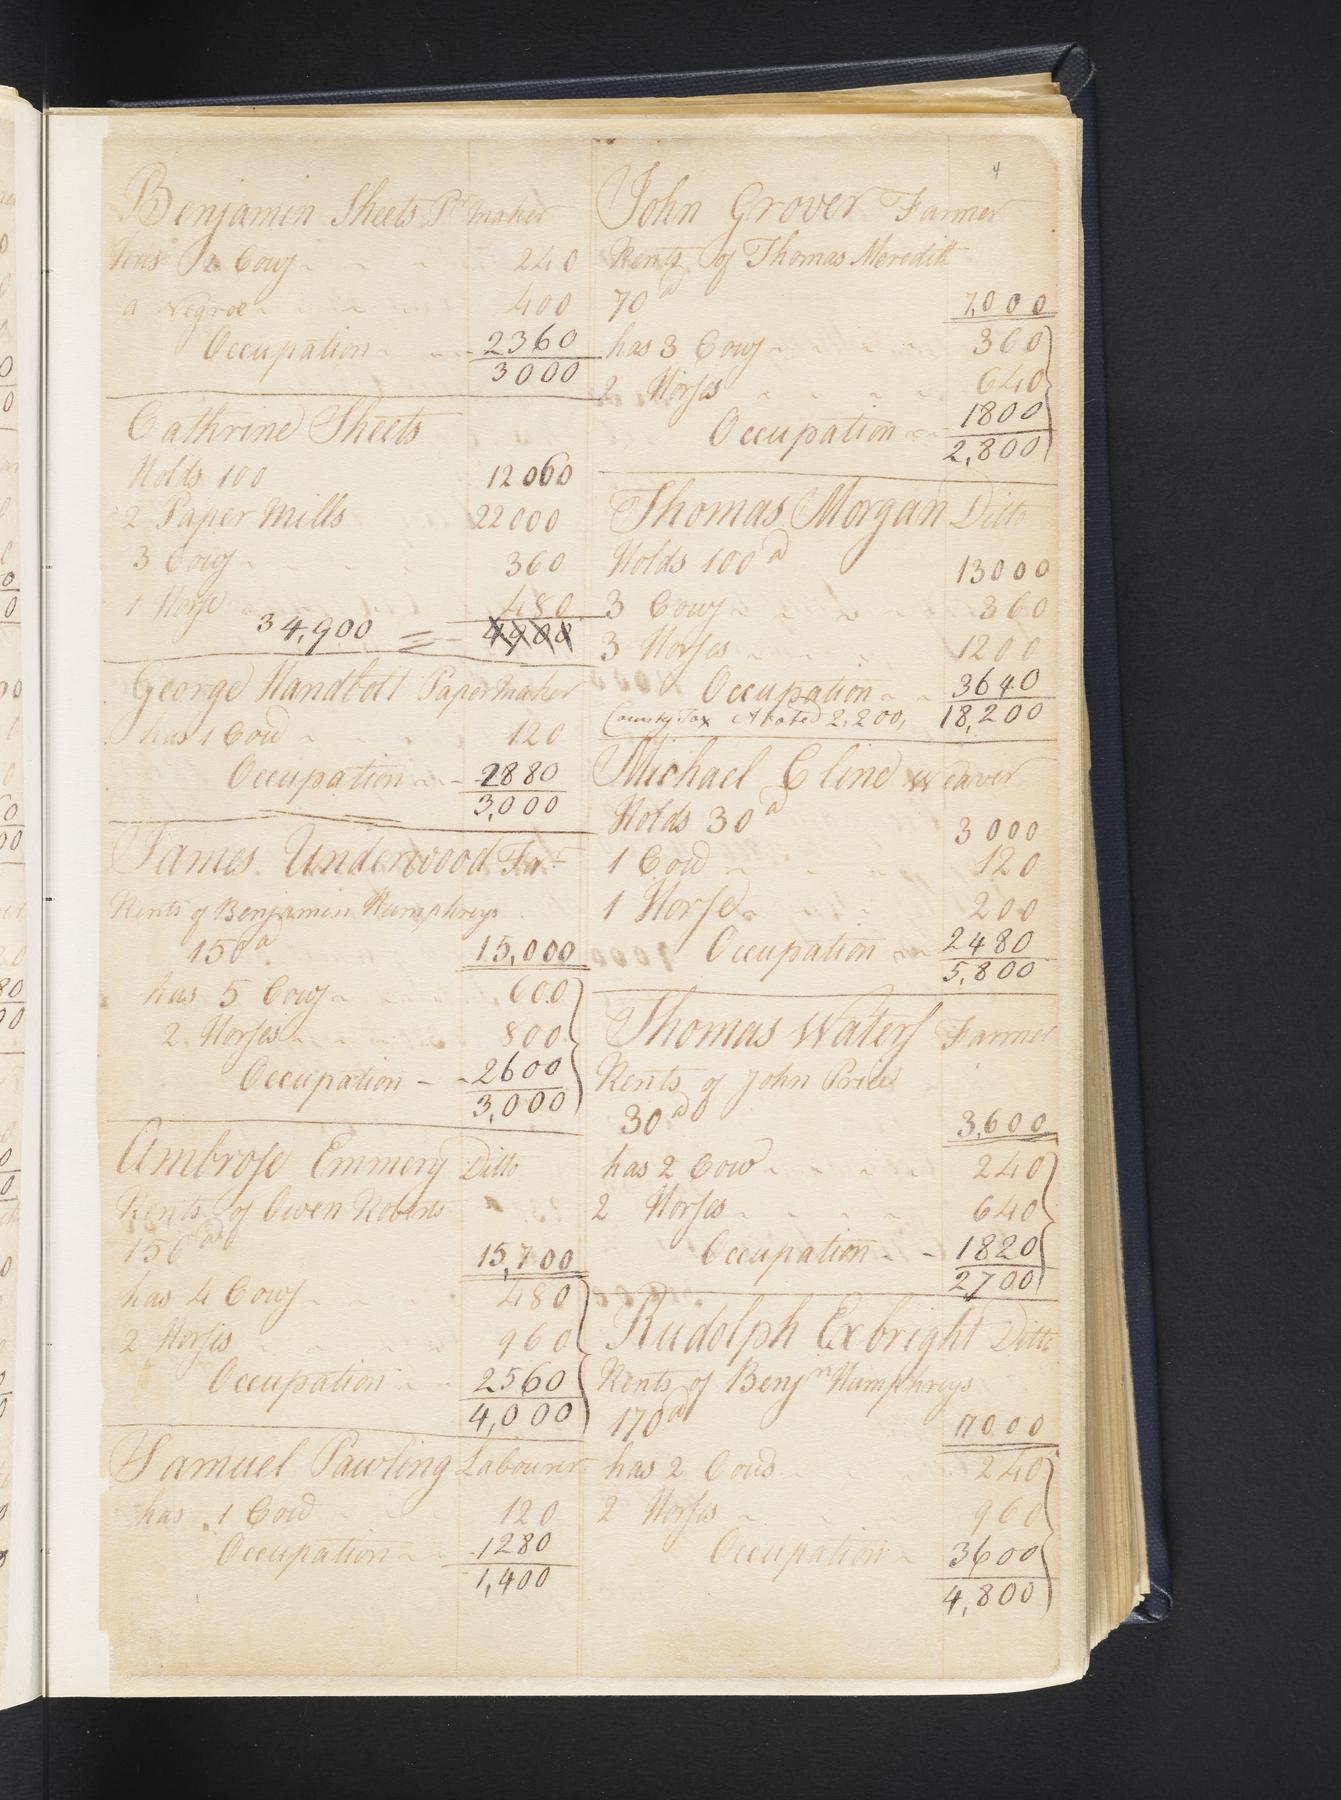 4
Benjamin Sheets Pr maker
has 2 Cows 240
a Negroe 400
Occupation 2360
3000
Cathrine Sheets
Holds 100 12060
2 Paper Mills 22000
3 Cows 360
1 Horse 480
34,900 4900
George Handbolt Paper maker
has 1 Cow 120
Occupation 2880
3,000
James Underwood Far
Rents of Benjamin Humphreys
150a 15,000
has 5 Cows 600
2 Horses 800
Occupation 2600
3,000
Ambrose Emmery Ditto
Rents of Owen Roberts
150as 15,700
has 4 Cows 480
2 Horses 960
Occupation 2560
4,000
Samuel Pawling Labourer
has 1 Cow 120
Occupation 1280
1,400
John Grover Farmer
Rents of Thomas Meredith
70a 7,000
has 3 Cows 360
2 Horses 640
Occupation 1800
2,800
Thomas Morgan Ditto
Holds 100a 13000
3 Cows 360
3 Horses 1200
Occupation 3640
County Tax Abated 2,200, 18,200
Michael Cline Weaver
Holds 30a 3000
1 Cow 120
1 Horse 200
Occupation 2480
5,800
Thomas Waters Farmer
Rents of John Price
30a 3,600
has 2 Cow 240
2 Horses 640
Occupation 1820
2,700
Rudolph Exbright Ditto
Rents of Benjn Humphreys
170a 17000
has 2 Cows 240
2 Horses 960
Occupation 3600
4,800